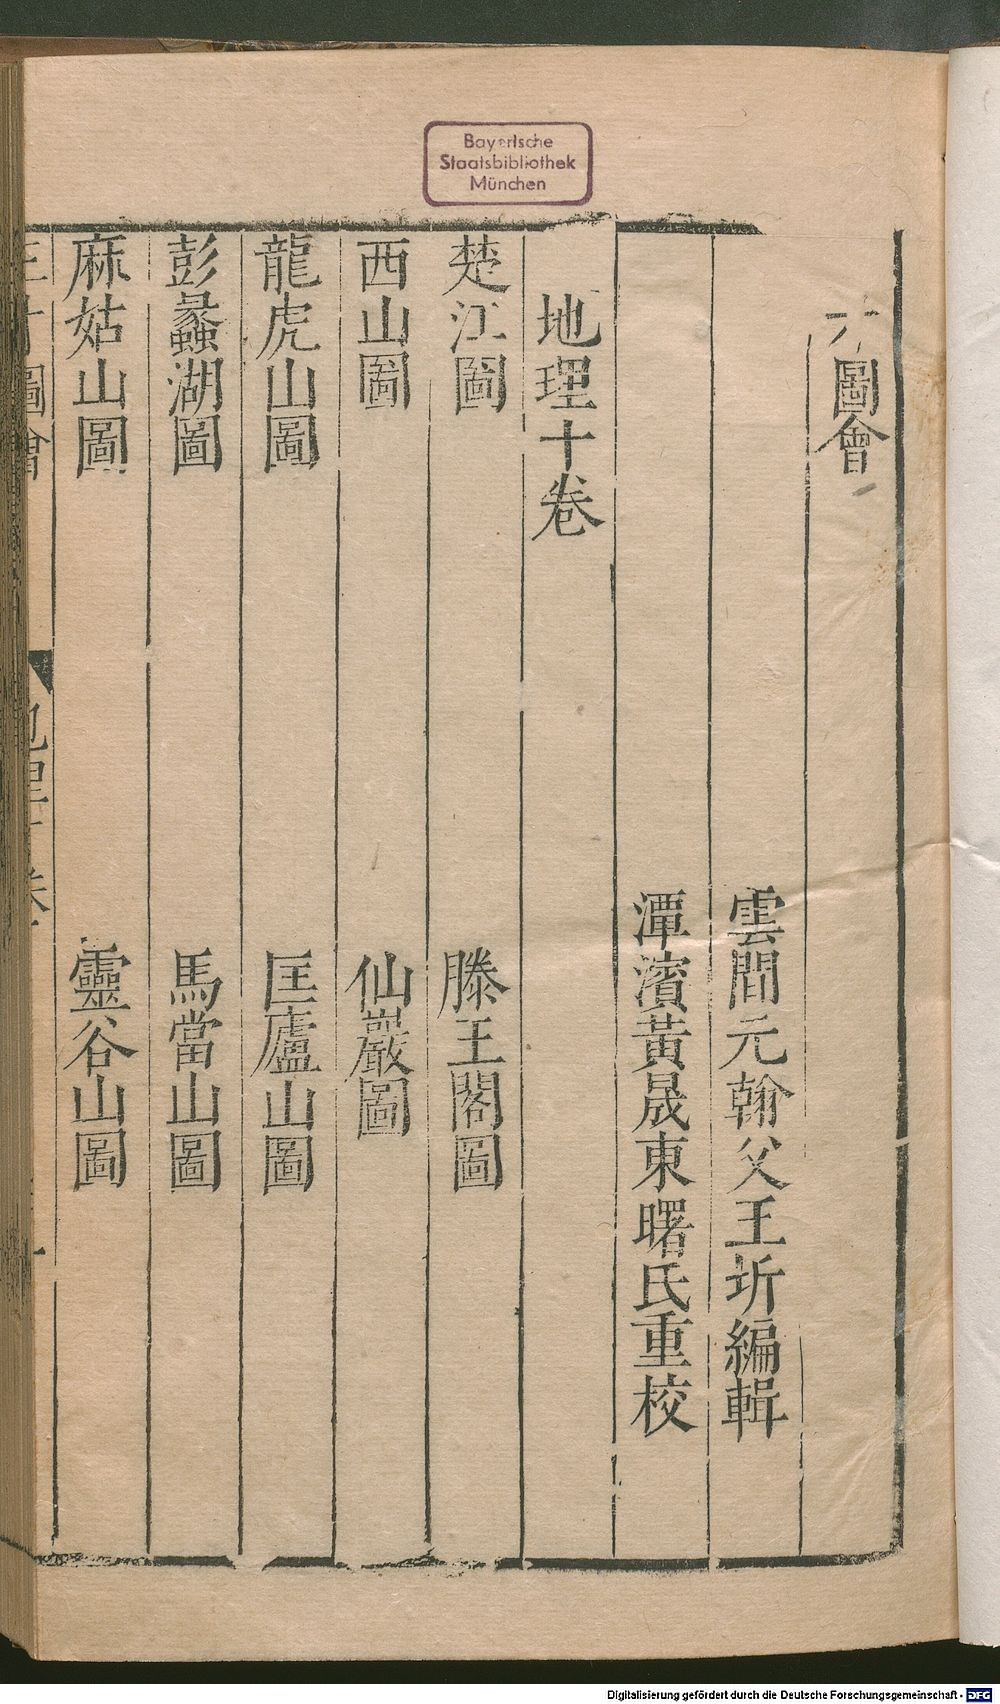 Bayerische
Staatsbibliothek
München
圖會
雲間元翰父王圻編輯
潭濱黃晟東曙氏重校
地理十卷
楚江圖
滕王閣圖
西山圖
仙巖圖
龍虎山圖
匡廬山圖
彭蠡湖圖
馬當山圖
麻姑山圖
靈谷山圖
圖會
Digitalisierung gefördert durch die Deutsche Forschungsgemeinschaft - DFG